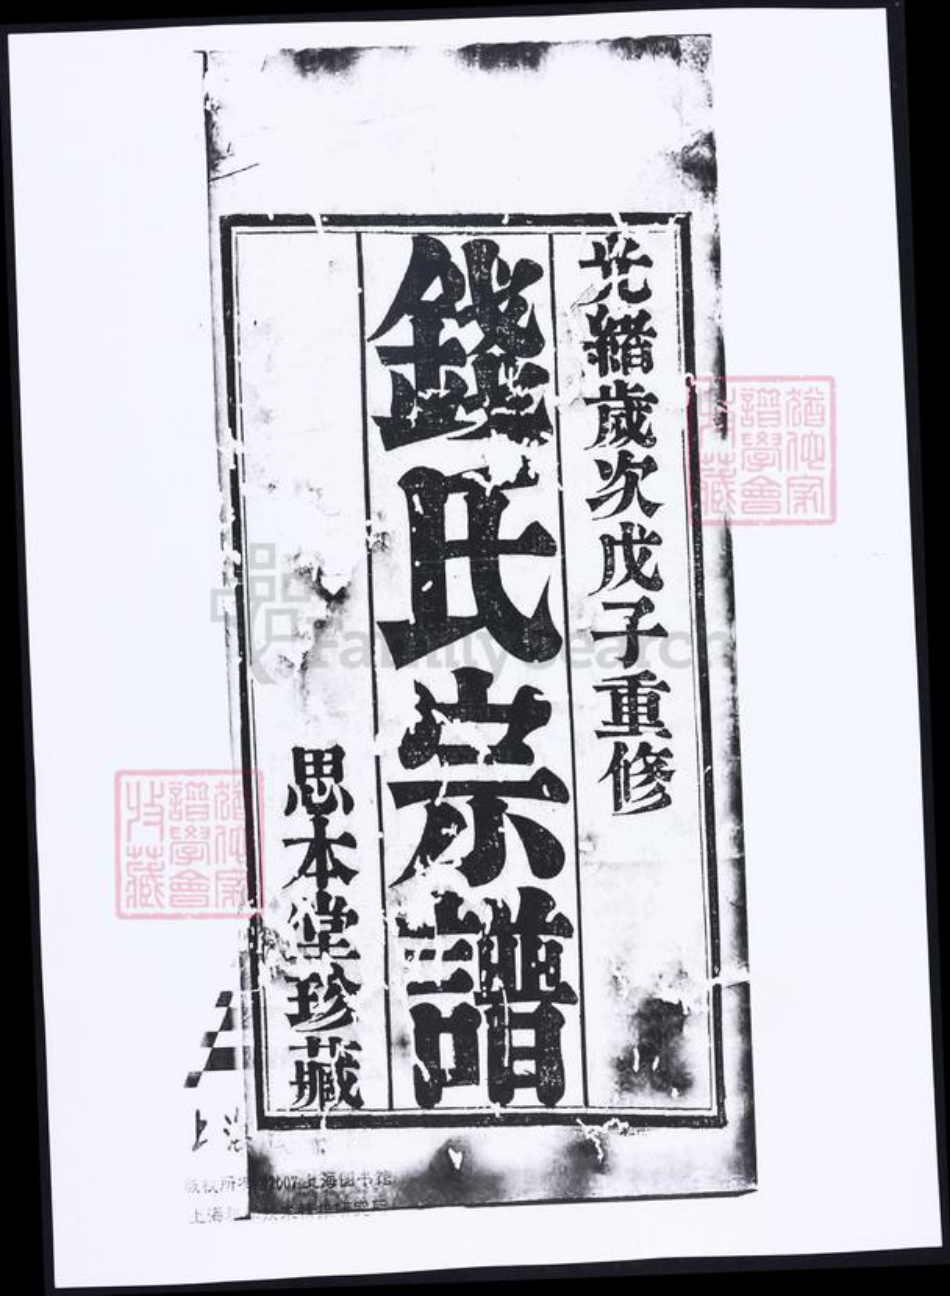 光緒歲次戊子重修
錢氏宗譜
思本堂珍藏
譜學會
收藏
FamilySearch
譜學會
收藏
上海
版权所有 2007上海图书馆
上海